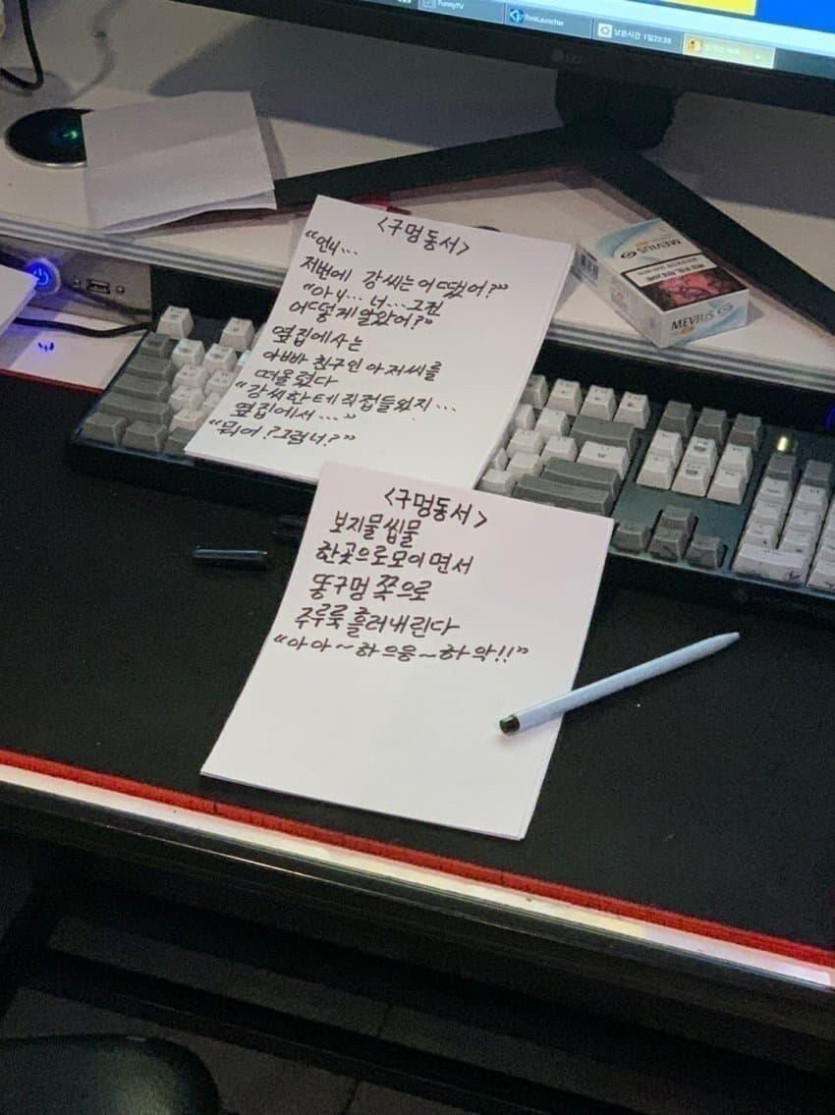 FunnyTV
남은시간 1일22:38
LG
<구멍동서>
“언니...
저번에 강씨는 어땠어?”
“아니... 너... 그건
어떻게 알았어?”
옆집에 사는
아빠 친구인 아저씨를
떠올렸다
“강씨한테 직접들었지...
옆집에서...”
“뭐어? 그럼 너?”
MEVIUS
MEVIUS
<구멍동서>
보지물씹물
한곳으로모이면서
똥구멍 쪽으로
주루룩 흘러내린다
“아아~하으응~하악!!”